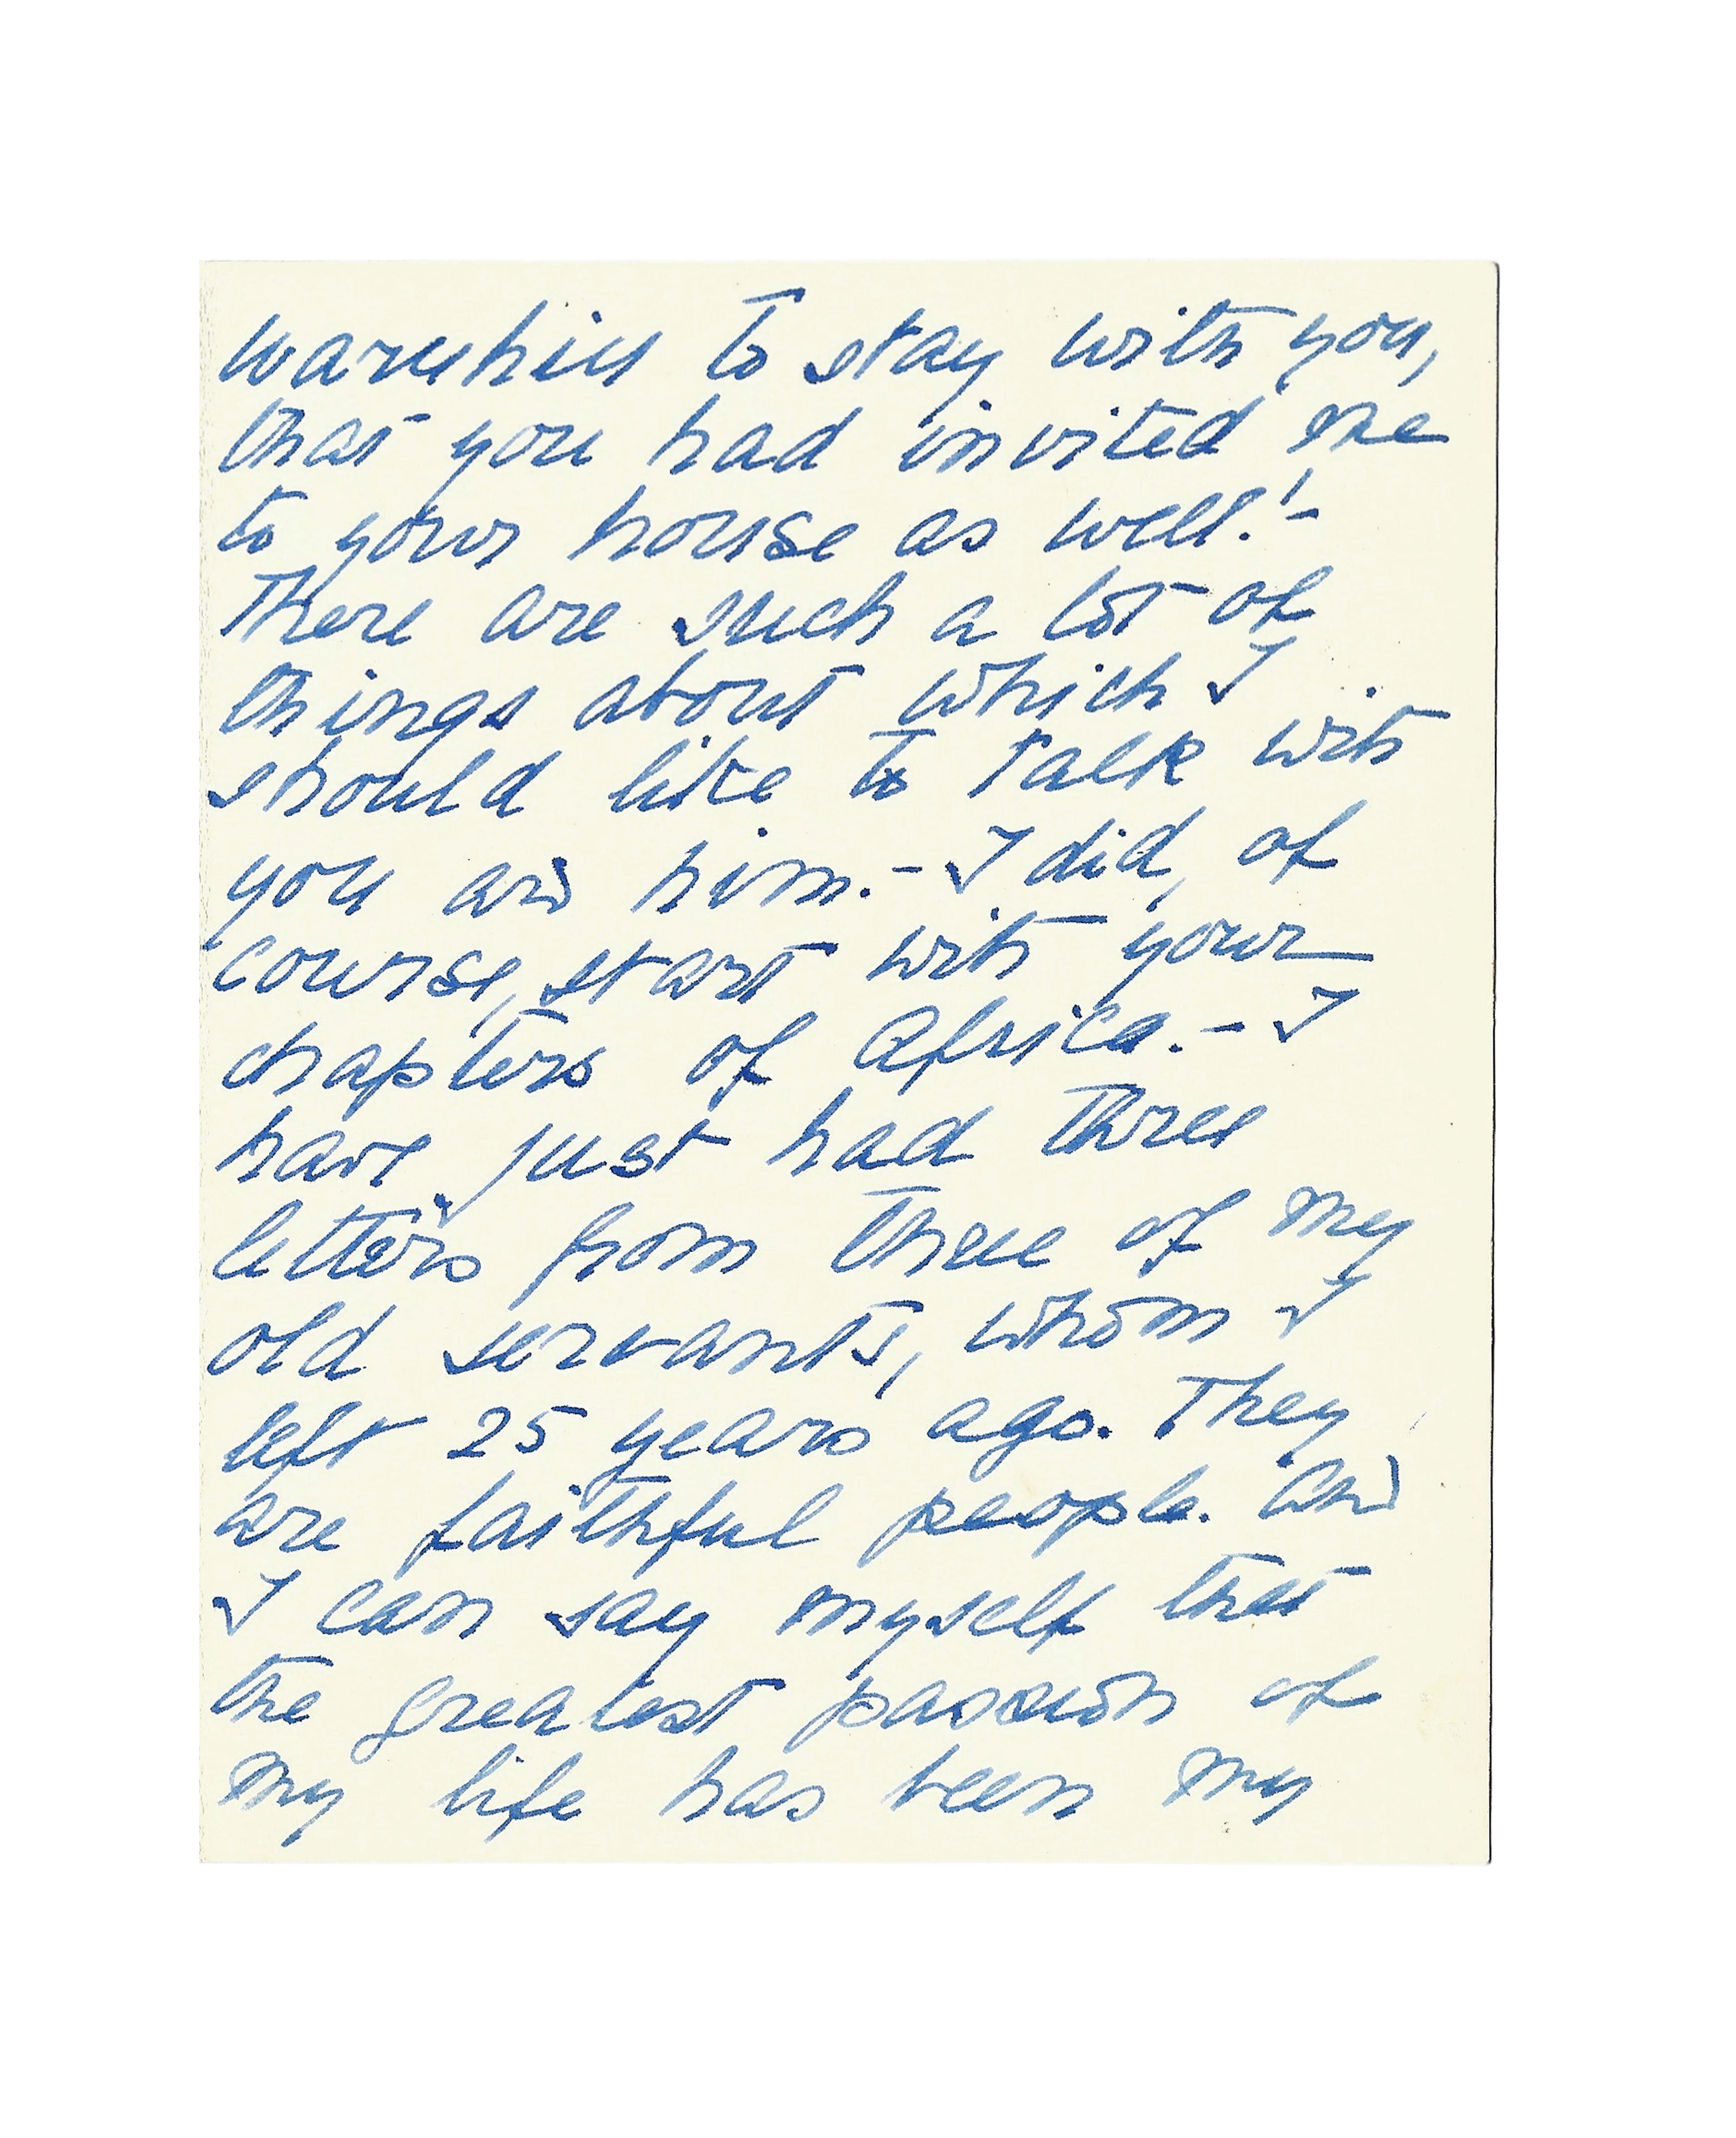 to stay with you,
that you had invited me
to your house as well!-
There are such a lot of
things about which I
should like to talk with
you and him.- I did, of
course, start with your
chapters of Africa.- I
have just had three
letters from three of my
old servants, whom I
left 25 years ago. They
are faithful people. And
I can say myself that
the greatest passion of
my life has been my